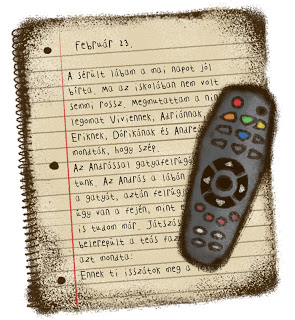 Február 23.
A sérült lábam a mai napot jól
bírta. Ma az iskolában nem volt
semmi rossz. Megmutattam a
legomat Viviennek, Adriánnak,
Eriknek, Dórikának és
mondták, hogy szép.
Az Andrással
tunk. Az András a lábán
a gatyát, aztán
úgy van a fején, mint
is tudom már.
belerepült a teás
azt mondta:
Ennek ti isszátok meg a